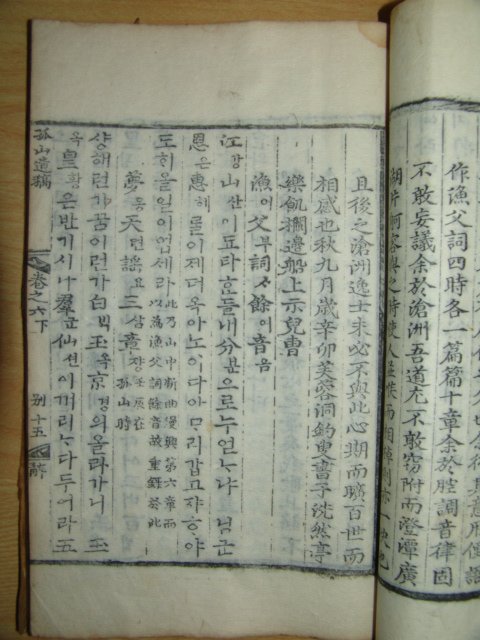 作漁父詞四時各一篇篇十章余於腔調音律固
不敢妄議余於滄洲吾道尤不敢竊附而澄潭廣
湖片舸容與之時使人並喉而相棹則亦一快也
且後之滄洲逸士未必不與此心期而曠百世而
相感也秋九月歲辛卯芙蓉洞釣叟書于洗然亭
樂飢欄邊船上示兒曹
漁어父부詞사餘여音음
江강山산이됴타ᄒᆞᆫᄃᆞᆯ내分분으로누얻ᄂᆞ냐님군
恩은惠혜ᄅᆞᆯ이제더옥아노이다아ᄆᆞ리갑고쟈ᄒᆞ야
도ᄒᆡ올일이업세라
此乃山中新曲漫興第六章而
以爲漁父詞餘音故重錄於此
夢몽天텬謠요三삼章쟝
壬辰在
孤山時
샹해런가ᄭᅮᆷ이런가白ᄇᆡᆨ玉옥京경의올라가니玉
옥皇황은반기시나羣군仙션이ᄭᅥ리ᄂᆞ다두어라五
孤山遺稿
卷之六下
別十五